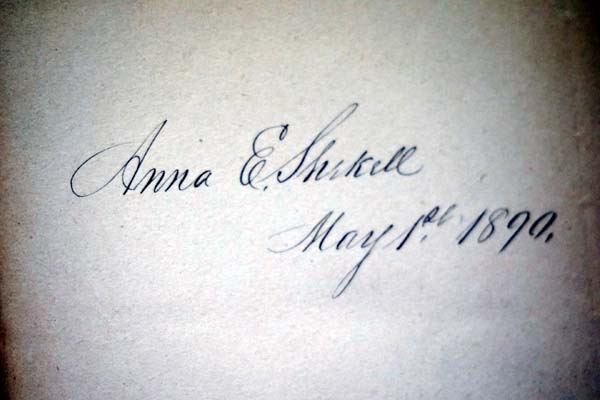 Anna E. Shekell
May 1st. 1890.